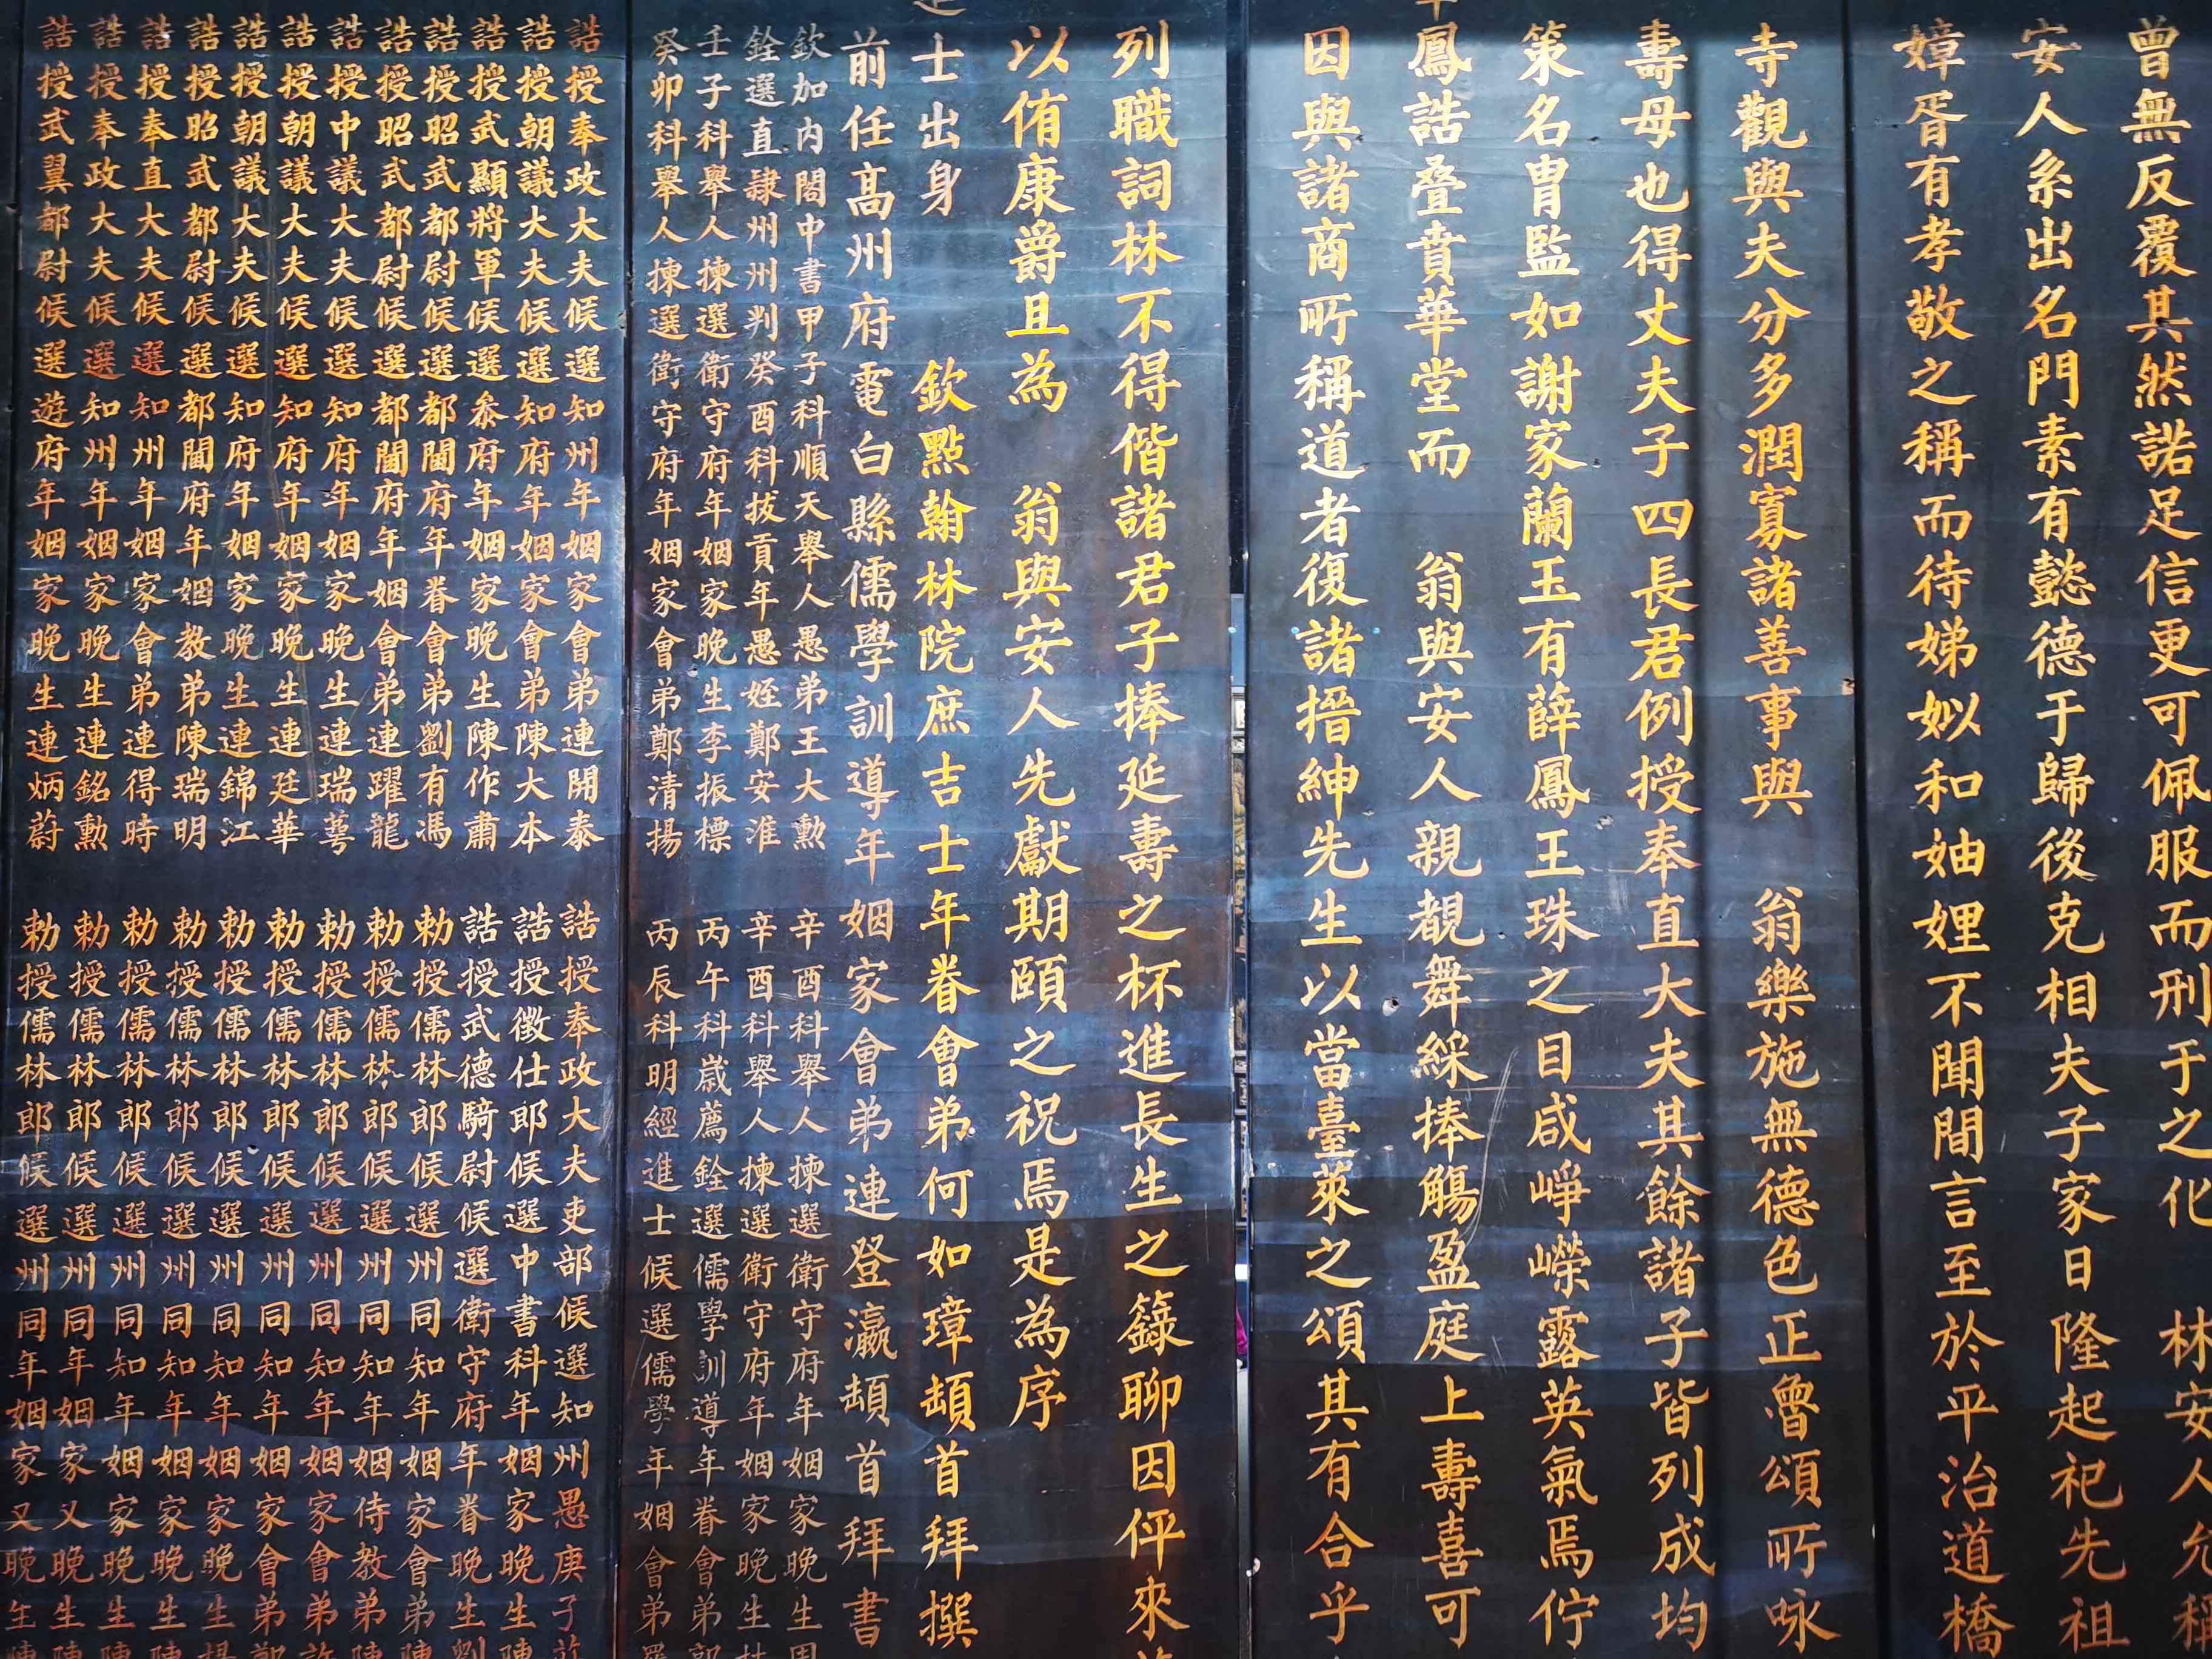 曾無反覆其然諾足信更可佩服而刑于之化 林安人允稱
安人系出名門素有懿德于歸後克相夫子家日隆起祀先祖
嫜胥有孝敬之稱而待娣姒和妯娌不聞間言至於平治道橋
寺觀與夫分多潤寡諸善事與 翁樂施無德色正魯頌所咏
壽母也得丈夫子四長君例授奉直大夫其餘諸子皆列成均
策名胄監如謝家蘭玉有薛鳳王珠之目咸崢嶸露英氣焉佇
鳳誥叠賁華堂而 翁與安人親覩舞綵捧觴盈庭上壽喜可
因與諸商所稱道者復諸搢紳先生以當臺萊之頌其有合乎
列職詞林不得偕諸君子捧延壽之杯進長生之籙聊因伻來
以侑康爵且為 翁與安人先獻期頤之祝焉是為序
士出身 欽點翰林院庶吉士年眷會弟何如璋頓首拜撰
前任高州府電白縣儒學訓導年姻家會弟連登瀛頓首拜書
欽加内閣中書甲子科順天舉人愚弟王大勲 辛酉科舉人揀選衛守府年姻家晚生
銓選直隸州州判癸酉科拔貢年愚姪鄭安淮 辛酉科舉人揀選衛守府年姻家晚生
壬子科舉人揀選衛守府年姻家晚生李振標 丙午科歲薦銓選儒學訓導年眷會弟
癸卯科舉人揀選衛守府年姻家會弟鄭清揚 丙辰科明經進士候選儒學年姻會弟
誥授奉政大夫候選知州年姻家會弟連開泰 誥授奉政大夫吏部候選知州愚庚子
誥授朝議大夫候選知府年姻家會弟陳大本 誥授徵仕郎候選中書科年姻家晚生陳
誥授武顯將軍候選叅府年姻家晚生陳作肅 誥授武德騎尉候選衛守府年眷晚生劉
誥授昭武都尉候選都閫府年眷會弟劉有馮 勅授儒林郎候選州同知年姻家會弟陳
誥授昭武都尉候選都閫府年姻會弟連躍龍 勅授儒林郎候選州同知年姻侍教弟陳
誥授中議大夫候選知府年姻家晚生連瑞萼 勅授儒林郎候選州同知年姻家會弟許
誥授朝議大夫候選知府年姻家晚生連廷華 勅授儒林郎候選州同知年姻家會弟鄭
誥授朝議大夫候選知府年姻家晚生連錦江 勅授儒林郎候選州同知年姻家晚生楊
誥授昭武都尉候選都閫府年姻教弟陳瑞明 勅授儒林郎候選州同知年姻家晚生陳
誥授奉直大夫候選知州年姻家會弟連得時 勅授儒林郎候選州同知年姻家晚生陳
誥授奉政大夫候選知州年姻家晚生連銘勲 勅授儒林郎候選州同年姻家又晚生陳
誥授武翼都尉候選遊府年姻家晚生連炳蔚 勅授儒林郎候選州同年姻家又晚生陳